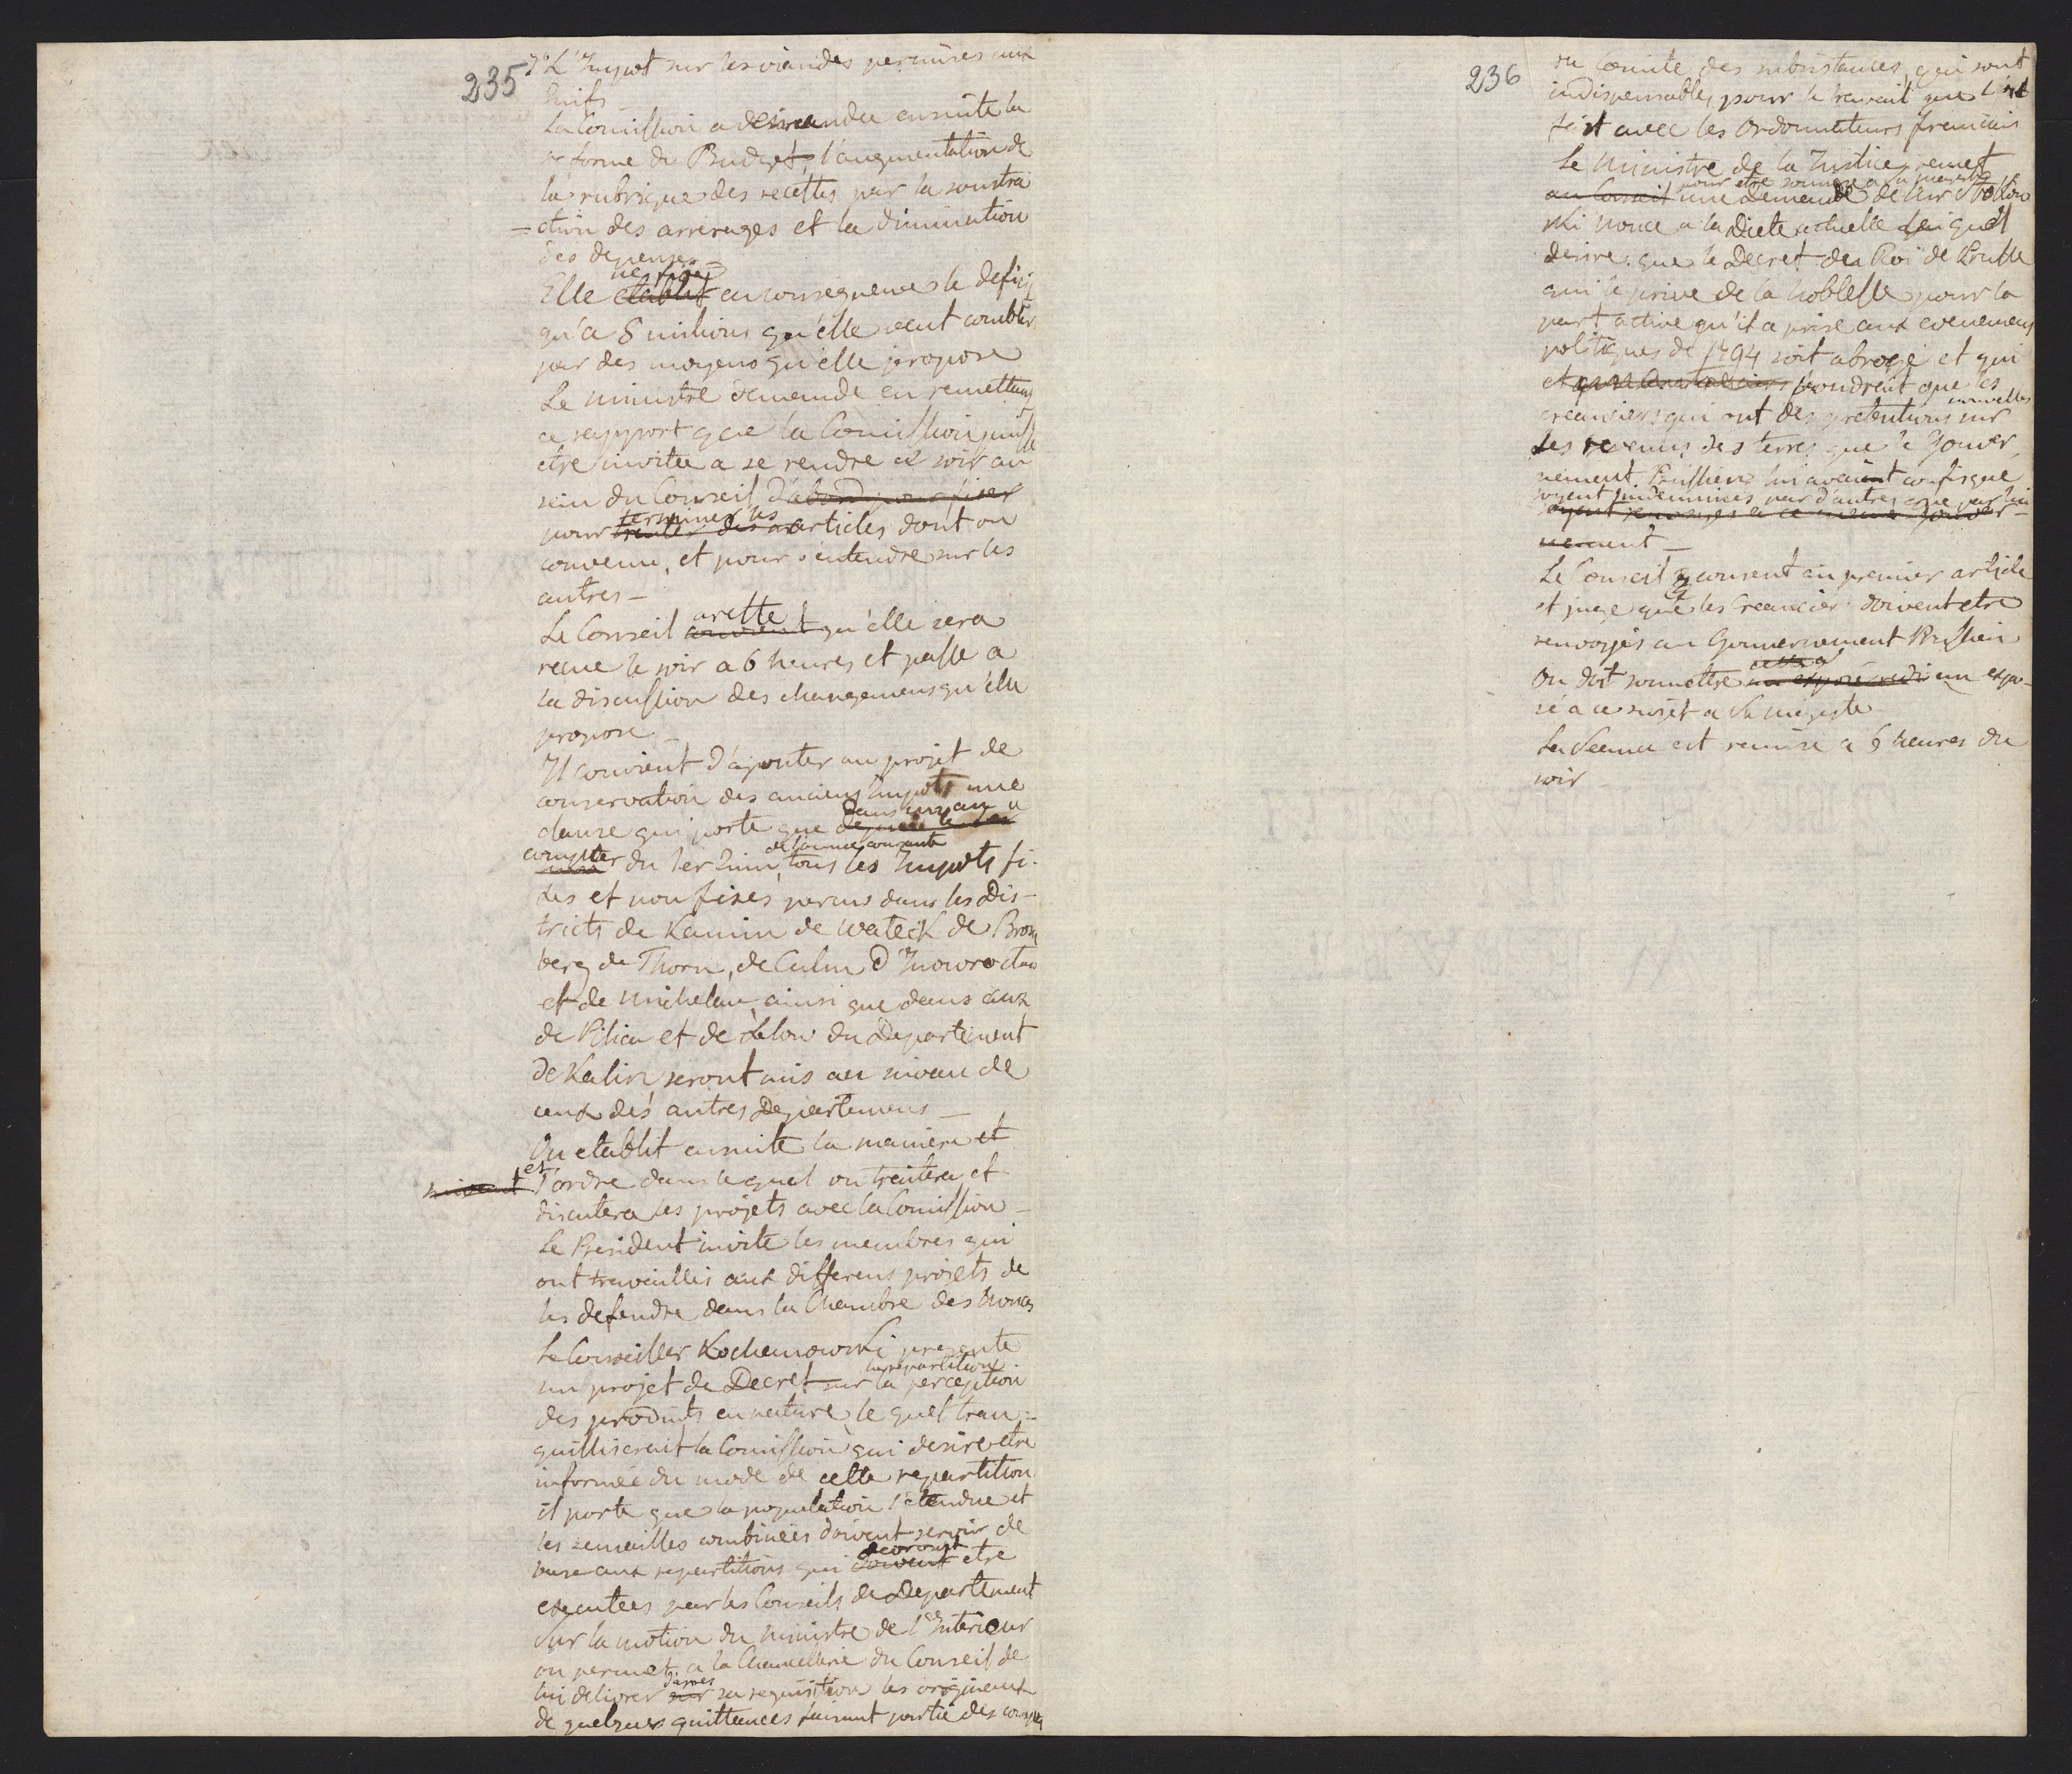 235
7° L'Impot sur les viandes permises aux
Juifs
La Comission a demandée ensuite la
reforme du Budget, l'augmentation de
la rubrique des recettes par la soustra
=ction des arrerages et la diminution
des depenses
Elle ne fixe etablit en consequence le defici
qu'a 8 milions qu'elle veut combler
par des moyens qu'elle propose
Le ministre demande en remettant
ce rapport que la Comission puisse
etre invitée a se rendre ce soir au
sein du Conseil d'abord pour fixer
pour terminer les traiter des articles dont on
convenu, et pour s'entendre sur les
autres —
Le Conseil arette convient qu'elle sera
recue le soir a 6 heures et passe a
la discussion des changemens qu'elle
propose —
Il convient d'ajouter au projet de
conservation des anciens Impots une
clause qui porte que dans un an a
compter du 1er Juin de l'année courante, tous les Impots fi-
xes et non fixes perçus dans les Dis-
tricts de Kamin de Wateck de Brom
berg de Thorn, de Culm d'Inowroclaw
et de Michelau, ainsi que dans ceux
de Pilica et de Lelow du Departement
de Kalisz seront mis au niveau de
ceux des autres Departemens —
On etablit ensuite la maniere et
suivant et l'ordre dans le quel on traitera et
discutera les projets avec la Comission —
Le President invite les membres qui
ont travaillés aux differens projets de
les defendre dans la Chambre des Nonces
Le Conseiller Kochanowski presente
un projet de Decret sur la repartition la perception
des produits en nature, le quel tran=
quilliserait la Comission qui desire etre
informée du mode de cette repartition
il porte que la population l'etendue et
les semailles combinées doivent servir de
base aux repartitions qui devront doivent etre
executées par les Conseils de Departement
Sur la motion du Ministre de l'Interieur
on permet a la Chancellerie du Conseil de
lui delivrer d'apres sur sa requisition les originaux
de quelques quittances faisant partie des comptes
236
du Comite des subsistances, qui sont
indispensables pour le travail que l'on
fait avec les Ordonnateurs francais
Le Ministre de la Justice remet
au Conseil pour etre soumise a Sa Majesté une Demande de Mr
ski nonce a la Diete actuelle qui
desire que le Decret du Roi de Prusse
qui le prive de la Noblesse pour la
part active qu'il a prise aux evenemens
politiques de 1794 soit abrogé et qui
et voudrait que les
creanciers qui ont des pretentions nouvelles sur
les revenus des terres que le Gouver
nement Prussien lui avaient confisque
soyent indemnisés par d'autres que par lui
soyent renvoyés a ce meme Gouver-
nement —
Le Conseil consent au premier article
et juge que les Creancier doivent etre
renvoyés au Gouvernement Prussien
On doit soumettre un expo-
sé a ce sujet a Sa Majeste
La Seance est remise a 6 heures du
soir